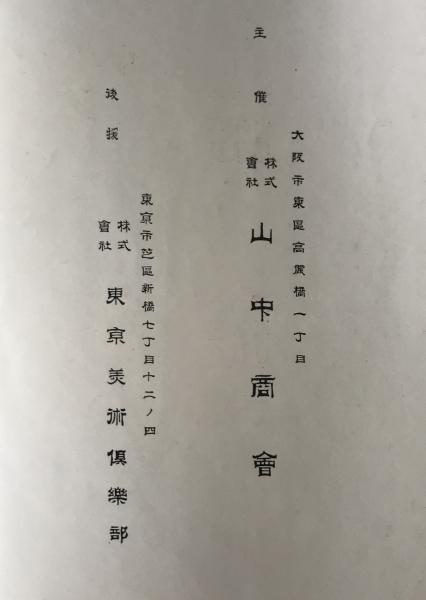 大阪市東區高麗橋一丁目
主催 株式會社 山中商會
東京市芝區新橋七丁目十二ノ四
後援 株式會社 東京美術倶樂部